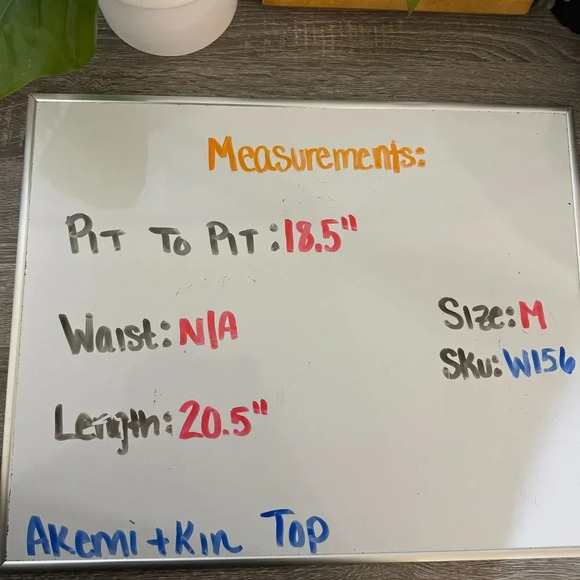 Measurements:
Pit To Pit: 18.5"
Waist: N/A
Size: M
Sku: W156
Length: 20.5"
Akemi + Kin Top